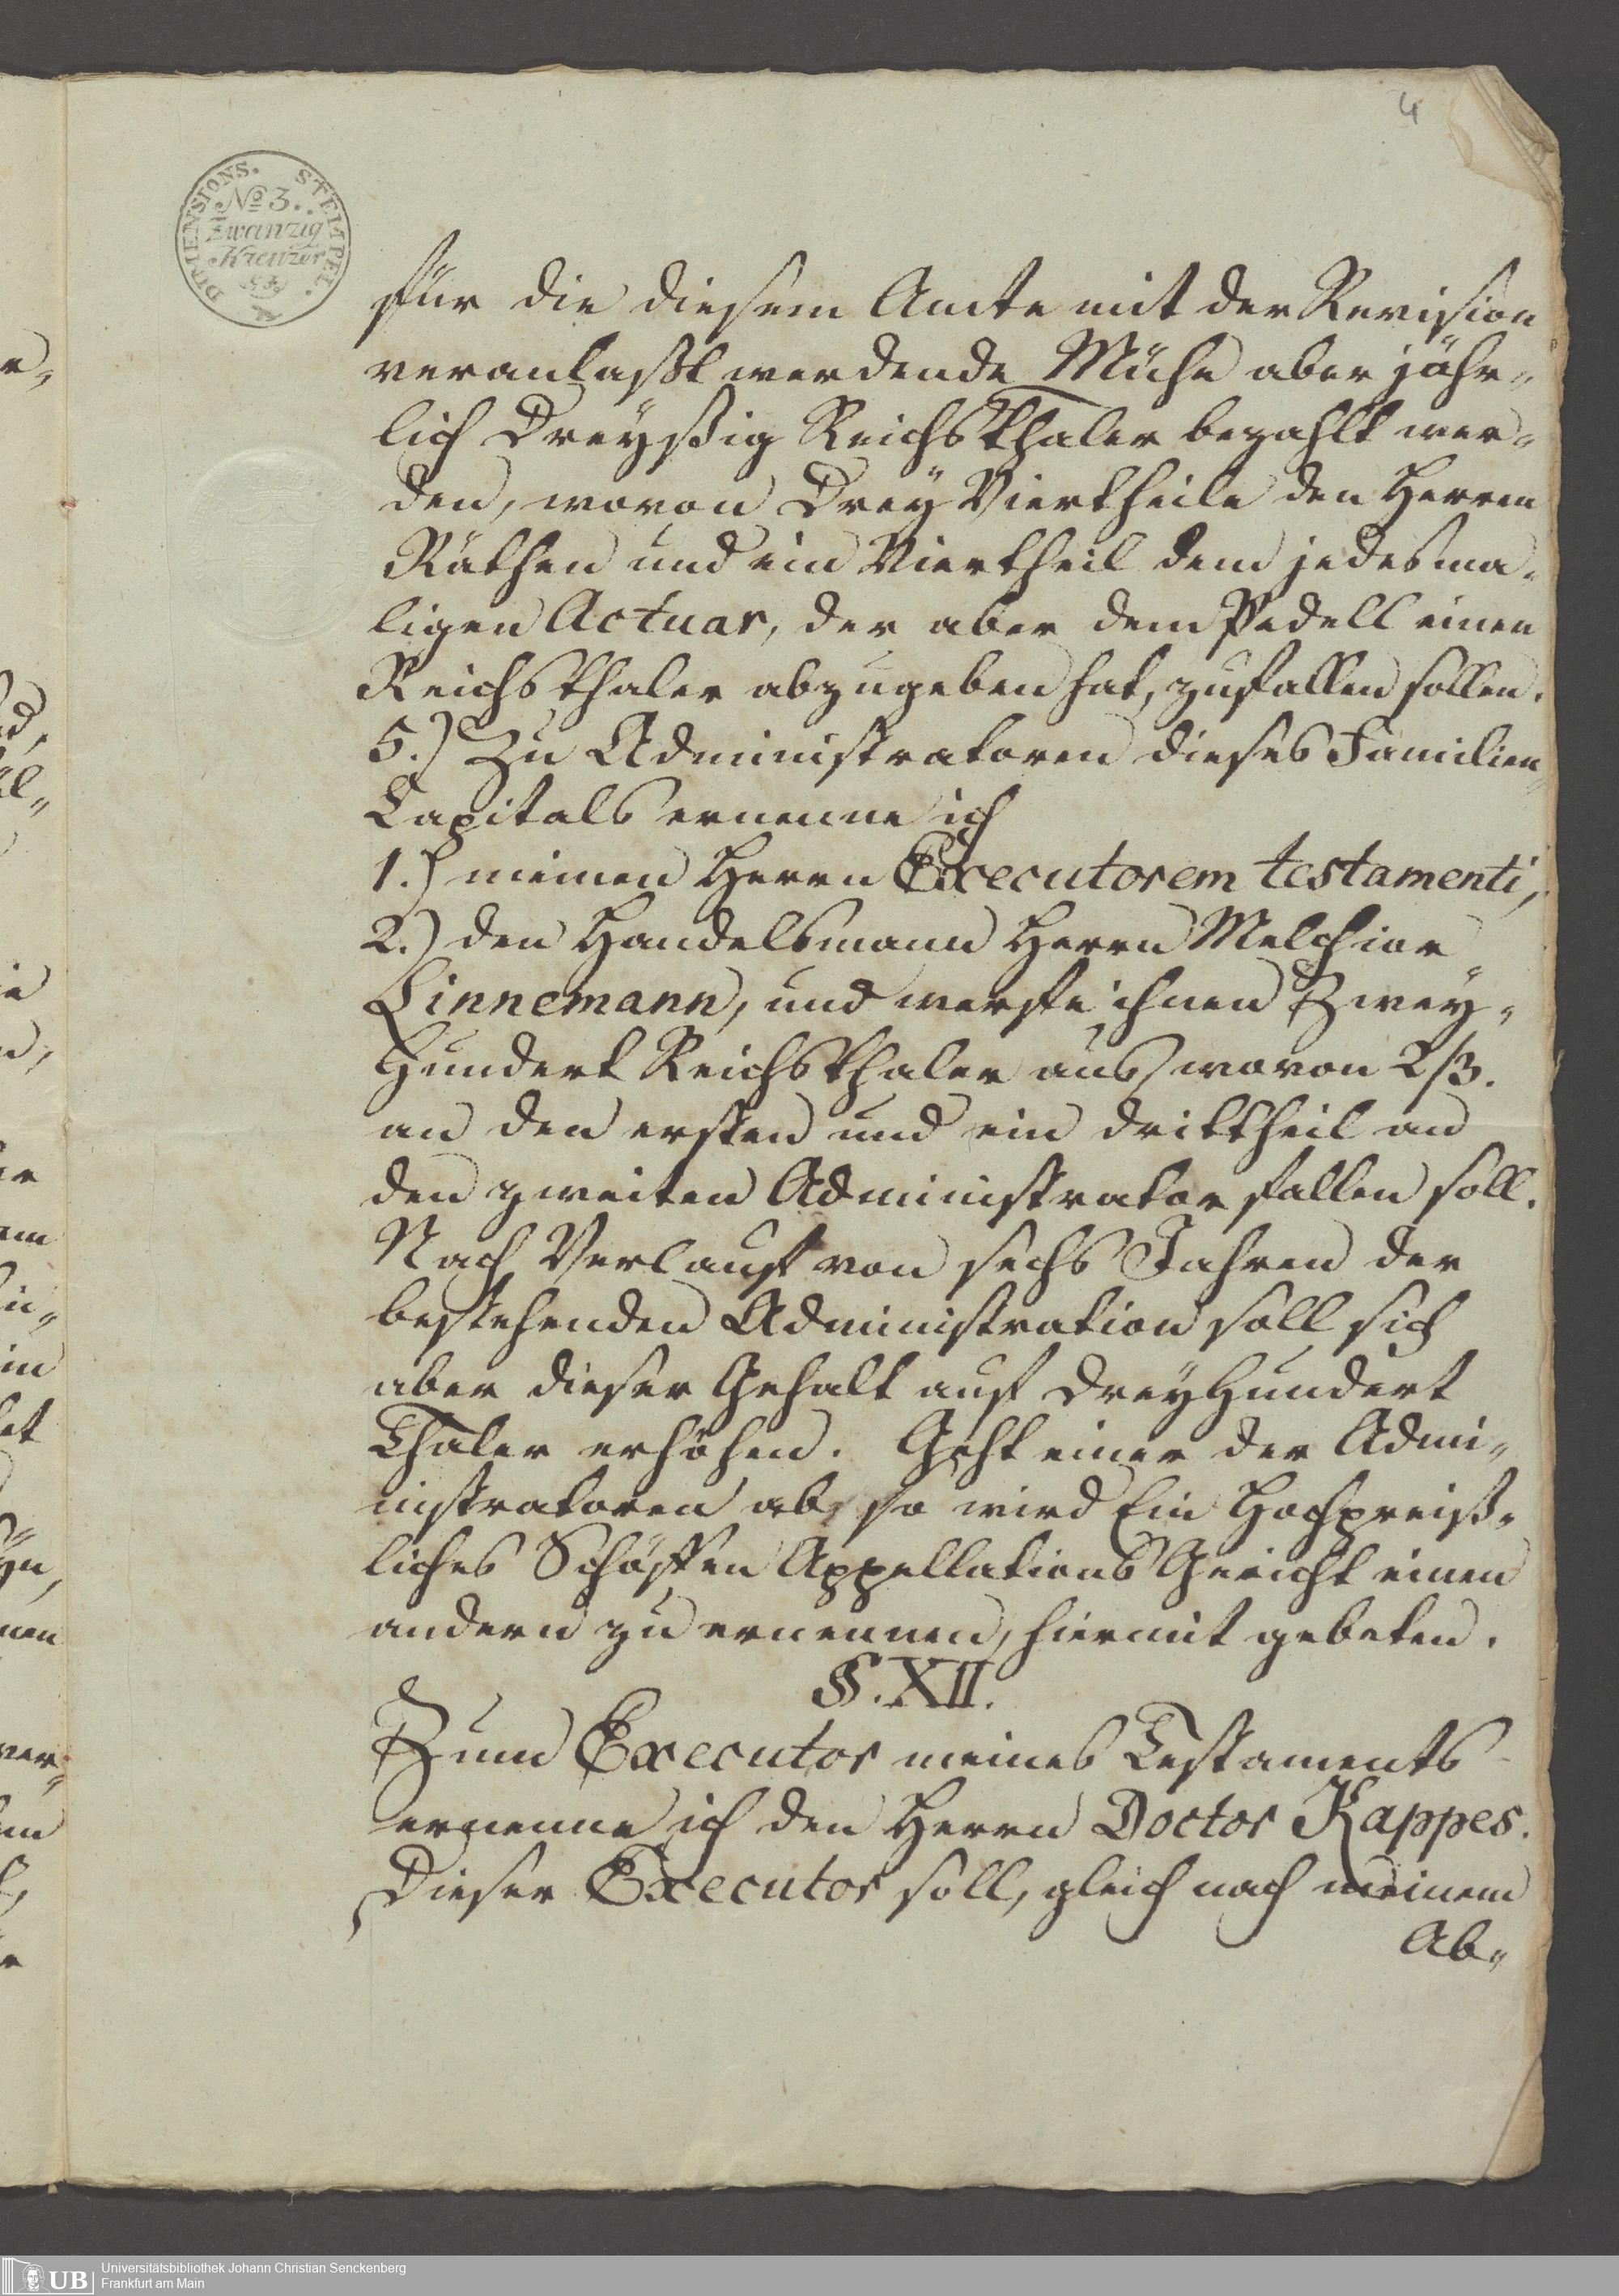 4
DIMENSIONS. STEMPEL.
No 3.
Zwanzig
Kreuzer
für die diesem Amte mit der Revision
veranlaßt werdende Mühe aber jähr„
lich Dreyßig Reichsthaler bezahlt wer„
den, wovon Drey Viertheile den Herren
Räthen und ein Viertheil dem jedesma„
ligen Actuar, der aber dem Pedell einen
Reichsthaler abzugeben hat, zufallen sollen.
5.) Zu Administratoren dieses Familien„
Capitals ernenne ich
1.) meinen Herrn Executorem testamenti,
2.) den Handelsmann Herrn Melchior
Linnemann, und werfe ihnen Zwey„
Hundert Reichsthaler aus, wovon 2/3.
an den ersten und ein drittheil an
den zweiten Administrator fallen soll.
Nach Verlauf von sechs Jahren der
bestehenden Administration soll sich
aber dieser Gehalt auf dreyhundert
Thaler erhöhen. Geht einer der Admi„
nistratoren ab, so wird Ein Hochpreiß„
liches Schöffen Appellations Gericht einen
andern zu ernennen, hiermit gebeten.
§. XII.
Zum Executor meines Testaments
ernenne ich den Herrn Doctor Kappes.
Dieser Executor soll, gleich nach meinem
Ab„
UB
Universitätsbibliothek Johann Christian Senckenberg
Frankfurt am Main